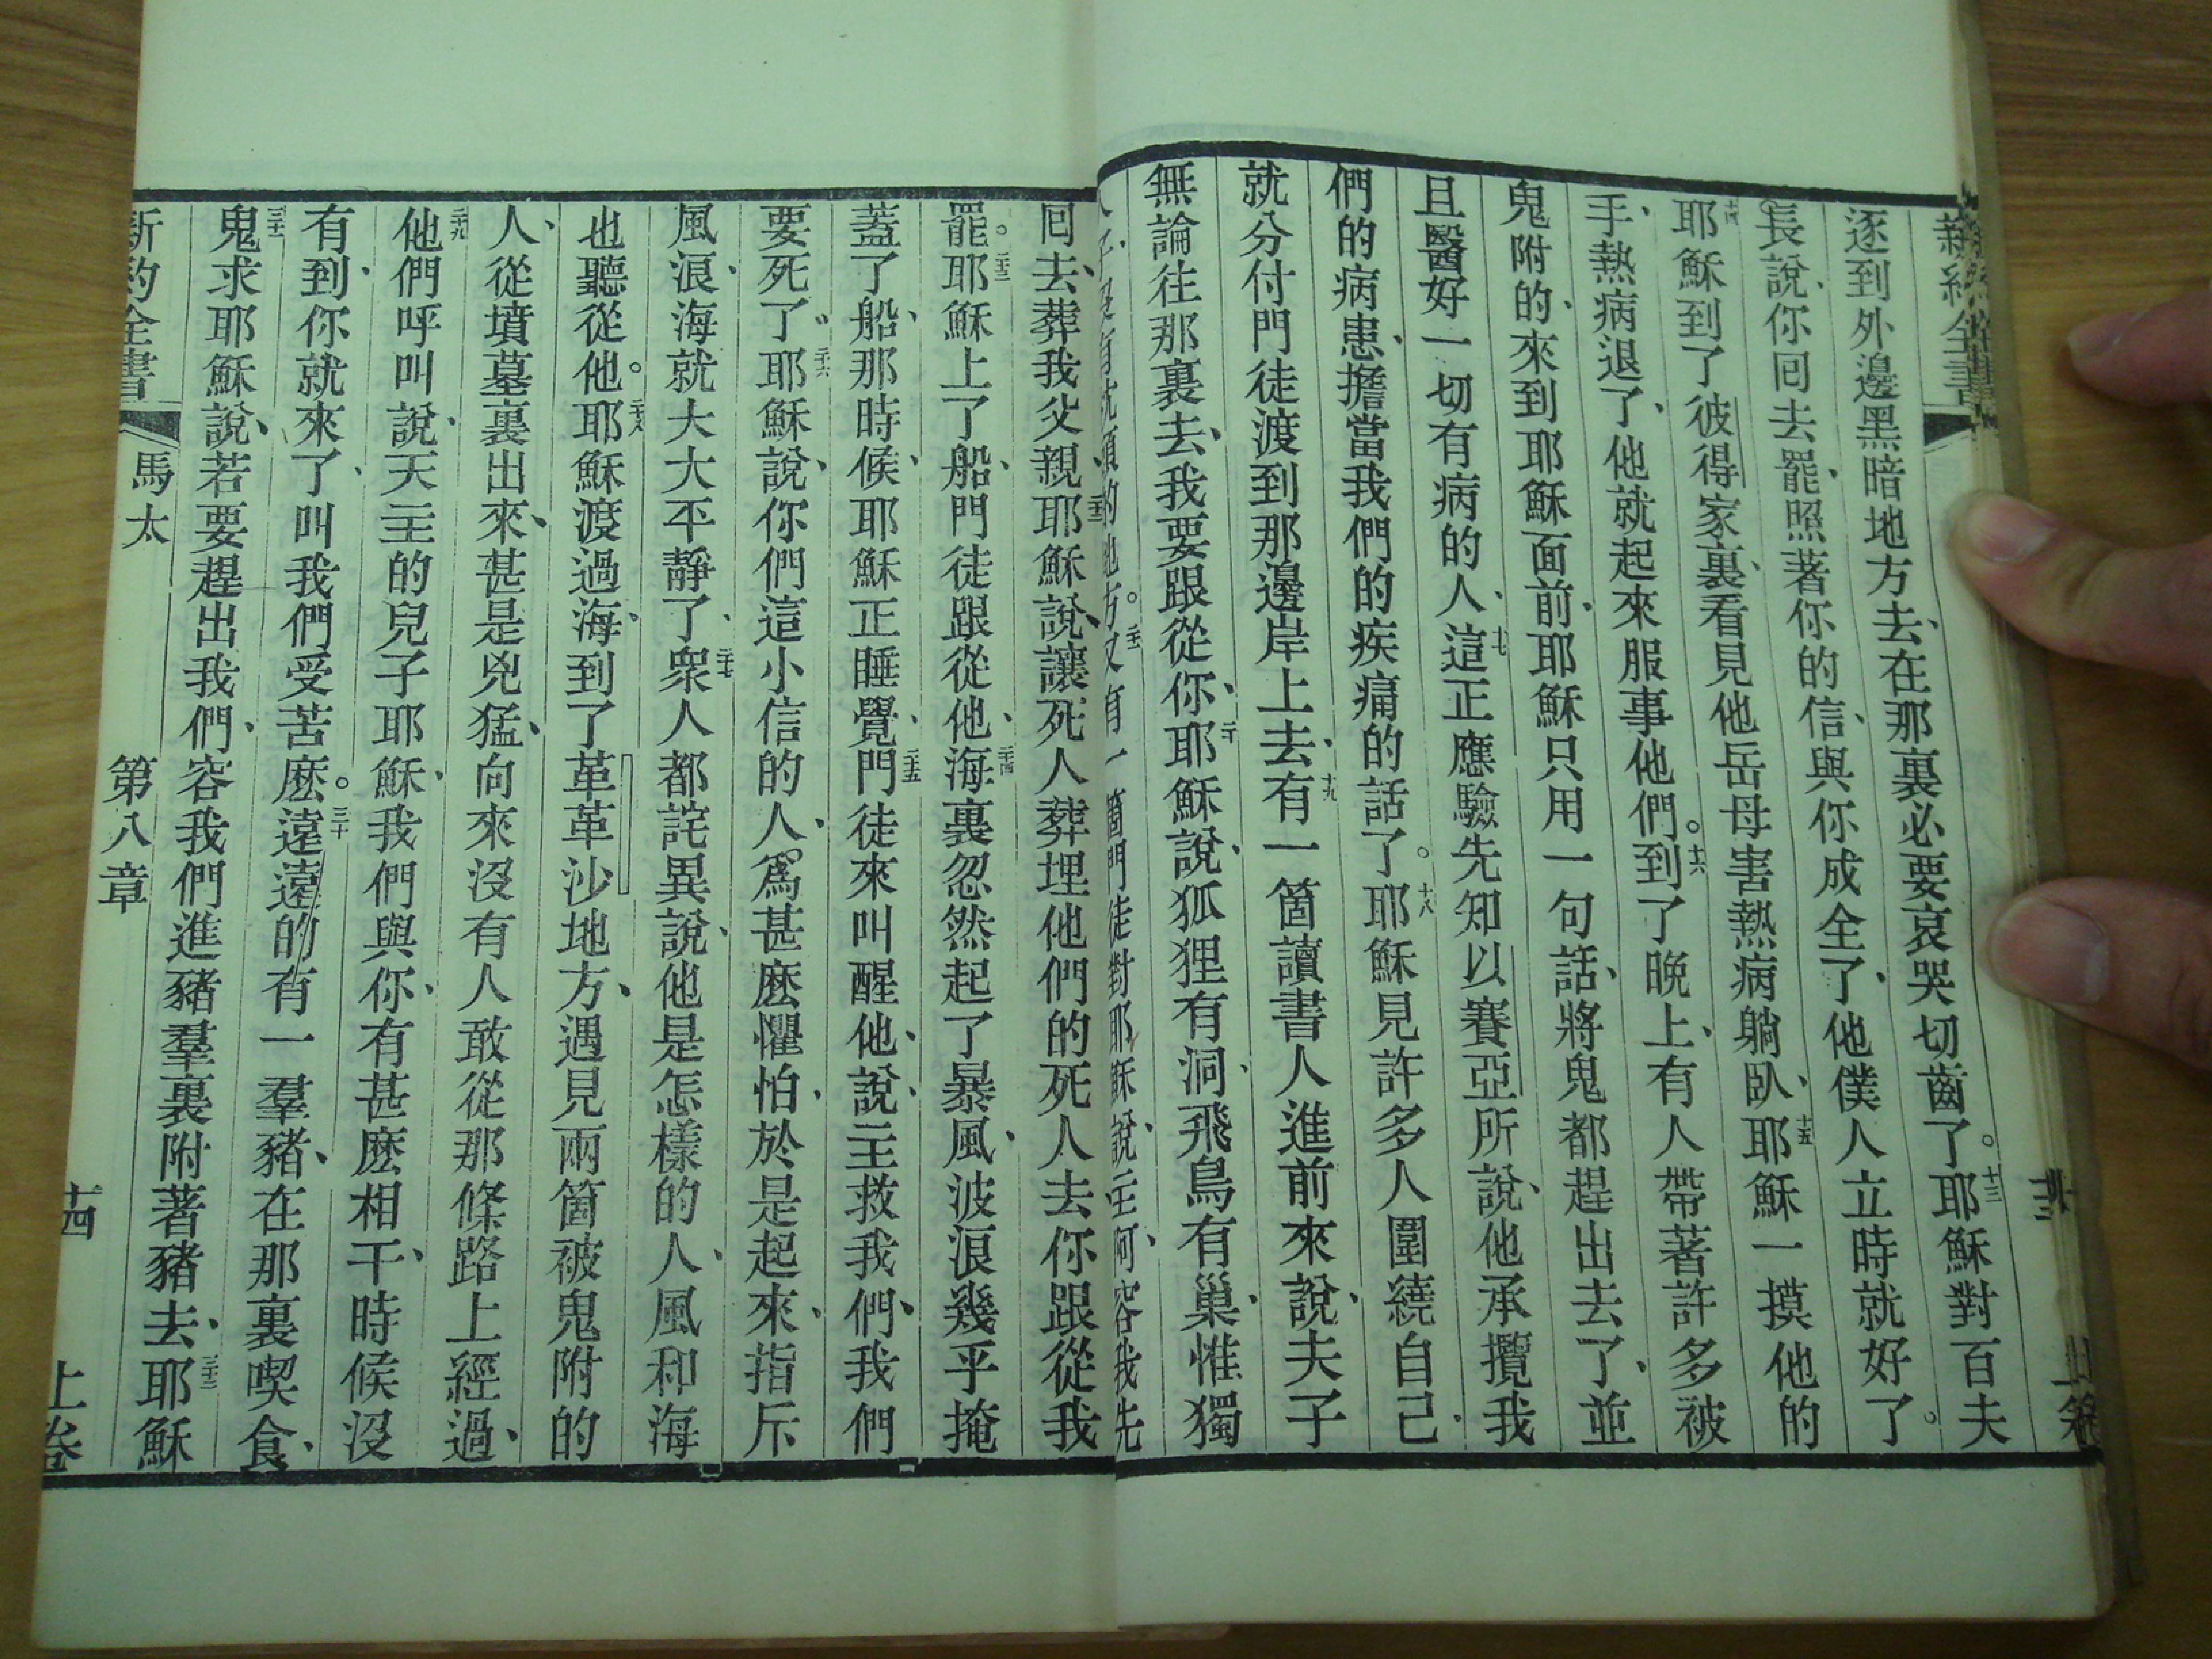 新約全書
逐到外邊黑暗地方去、在那裏必要哀哭切齒了。十三耶穌對百夫
長說、你回去罷、照著你的信、與你成全了、他僕人立時就好了。
十四耶穌到了彼得家裏、看見他岳母害熱病躺臥、十五耶穌一摸他的
手、熱病退了、他就起來服事他們。十六到了晚上、有人帶著許多被
鬼附的、來到耶穌面前、耶穌只用一句話、將鬼都趕出去了、並
且醫好一切有病的人、十七這正應驗先知以賽亞所說、他承攬我
們的病患、擔當我們的疾痛的話了。十八耶穌見許多人圍繞自己、
就分付門徒渡到那邊岸上去、十九有一箇讀書人進前來說、夫子
無論往那裏去、我要跟從你、二十耶穌說、狐狸有洞、飛鳥有巢、惟獨
人子沒有枕頭的地方。二一又有一箇門徒對耶穌說、主阿、容我先
回去葬我父親、二二耶穌說、讓死人葬埋他們的死人去、你跟從我
罷。二三耶穌上了船、門徒跟從他、二四海裏忽然起了暴風、波浪幾乎掩
蓋了船、那時候、耶穌正睡覺、二五門徒來叫醒他、說、主救我們、我們
要死了。二六耶穌說、你們這小信的人、爲甚麽懼怕、於是起來、指斥
風浪、海就大大平靜了、二七衆人都詫異說、他是怎樣的人、風和海
也聽從他。二八耶穌渡過海、到了革革沙地方、遇見兩箇被鬼附的
人、從墳墓裏出來、甚是兇猛、向來沒有人敢從那條路上經過、
二九他們呼叫說、天主的兒子耶穌、我們與你、有甚麽相干、時候沒
有到、你就來了、叫我們受苦麽。三十遠遠的有一羣豬、在那裏喫食、
三一鬼求耶穌說、若要趕出我們、容我們進豬羣裏附著豬去、三二耶穌
新約全書 馬太 第八章 十四 上卷